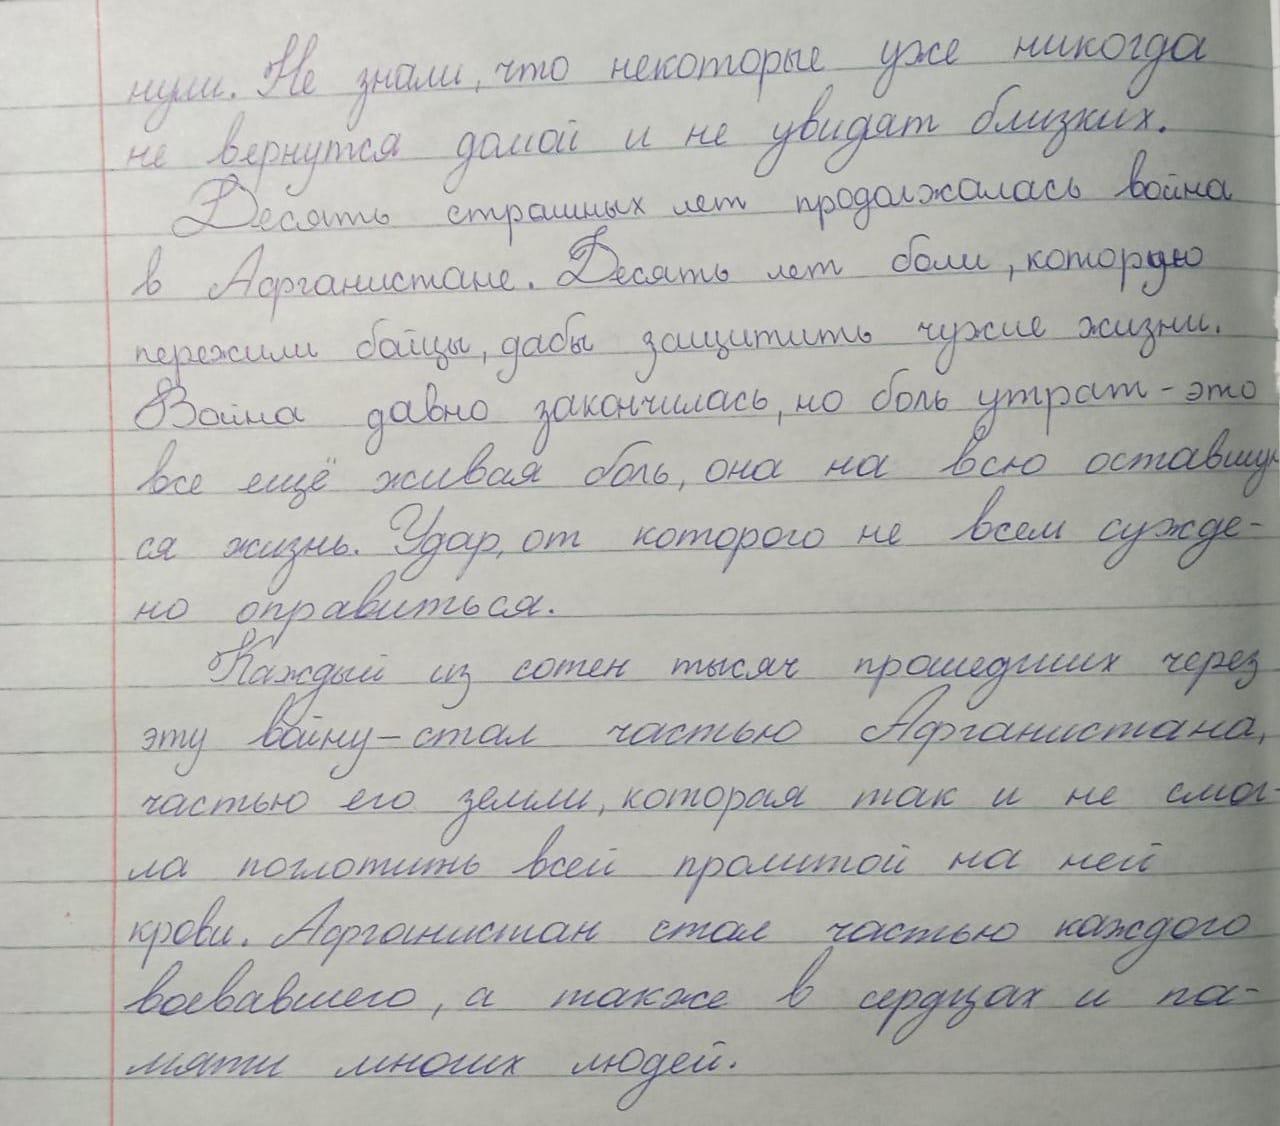 нули. Не знали, что некоторые уже никогда
не вернутся домой и не увидят близких.
Десять страшных лет продолжалась война
в Афганистане. Десять лет боли, которую
пережили бойцы, дабы защитить чужие жизни.
Война давно закончилась, но боль утрат - это
все ещё живая боль, она на всю оставшую
ся жизнь. Удар, от которого не всем сужде-
но оправиться.
Каждый из сотен тысяч прошедших через
эту войну - стал частью Афганистана,
частью его земли, которая так и не смог-
ла поглотить всей пролитой на ней
крови. Афганистан стал частью каждого
воевавшего, а также в сердцах и па-
мяти многих людей.